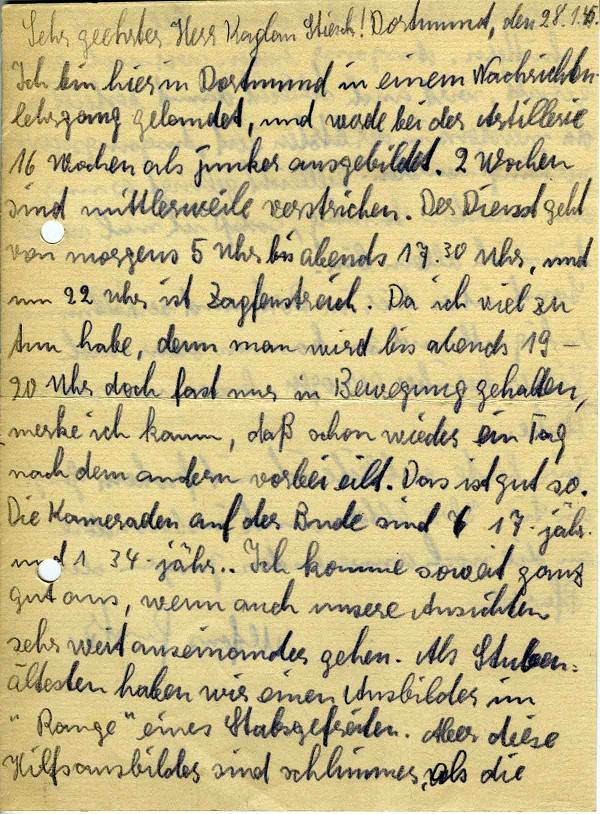 Sehr geehrter Herr Kaplan Stiesch! Dortmund, den 28.1.45.
Ich bin hier in Dortmund in einem Nachrichten-
lehrgang gelandet, und werde bei der Artillerie
16 Wochen als Junker ausgebildet. 2 Wochen
sind mittlerweile verstrichen. Der Dienst geht
von morgens 5 Uhr bis abends 17.30 Uhr, und
um 22 Uhr ist Zapfenstreich. Da ich viel zu
tun habe, denn man wird bis abends 19–
20 Uhr doch fast nur in Bewegung gehalten,
merke ich kaum, daß schon wieder ein Tag
nach dem andern vorbei eilt. Das ist gut so.
Die Kameraden auf der Bude sind 17-jähr.
und 1 34-jähr.. Ich komme soweit ganz
gut aus, wenn auch unsere Ansichten
sehr weit auseinander gehen. Als Stuben=
ältesten haben wir einen Ausbilder im
"Range" eines Stabsgefreiten. Aber diese
Hilfsausbilder sind schlimmer, als die